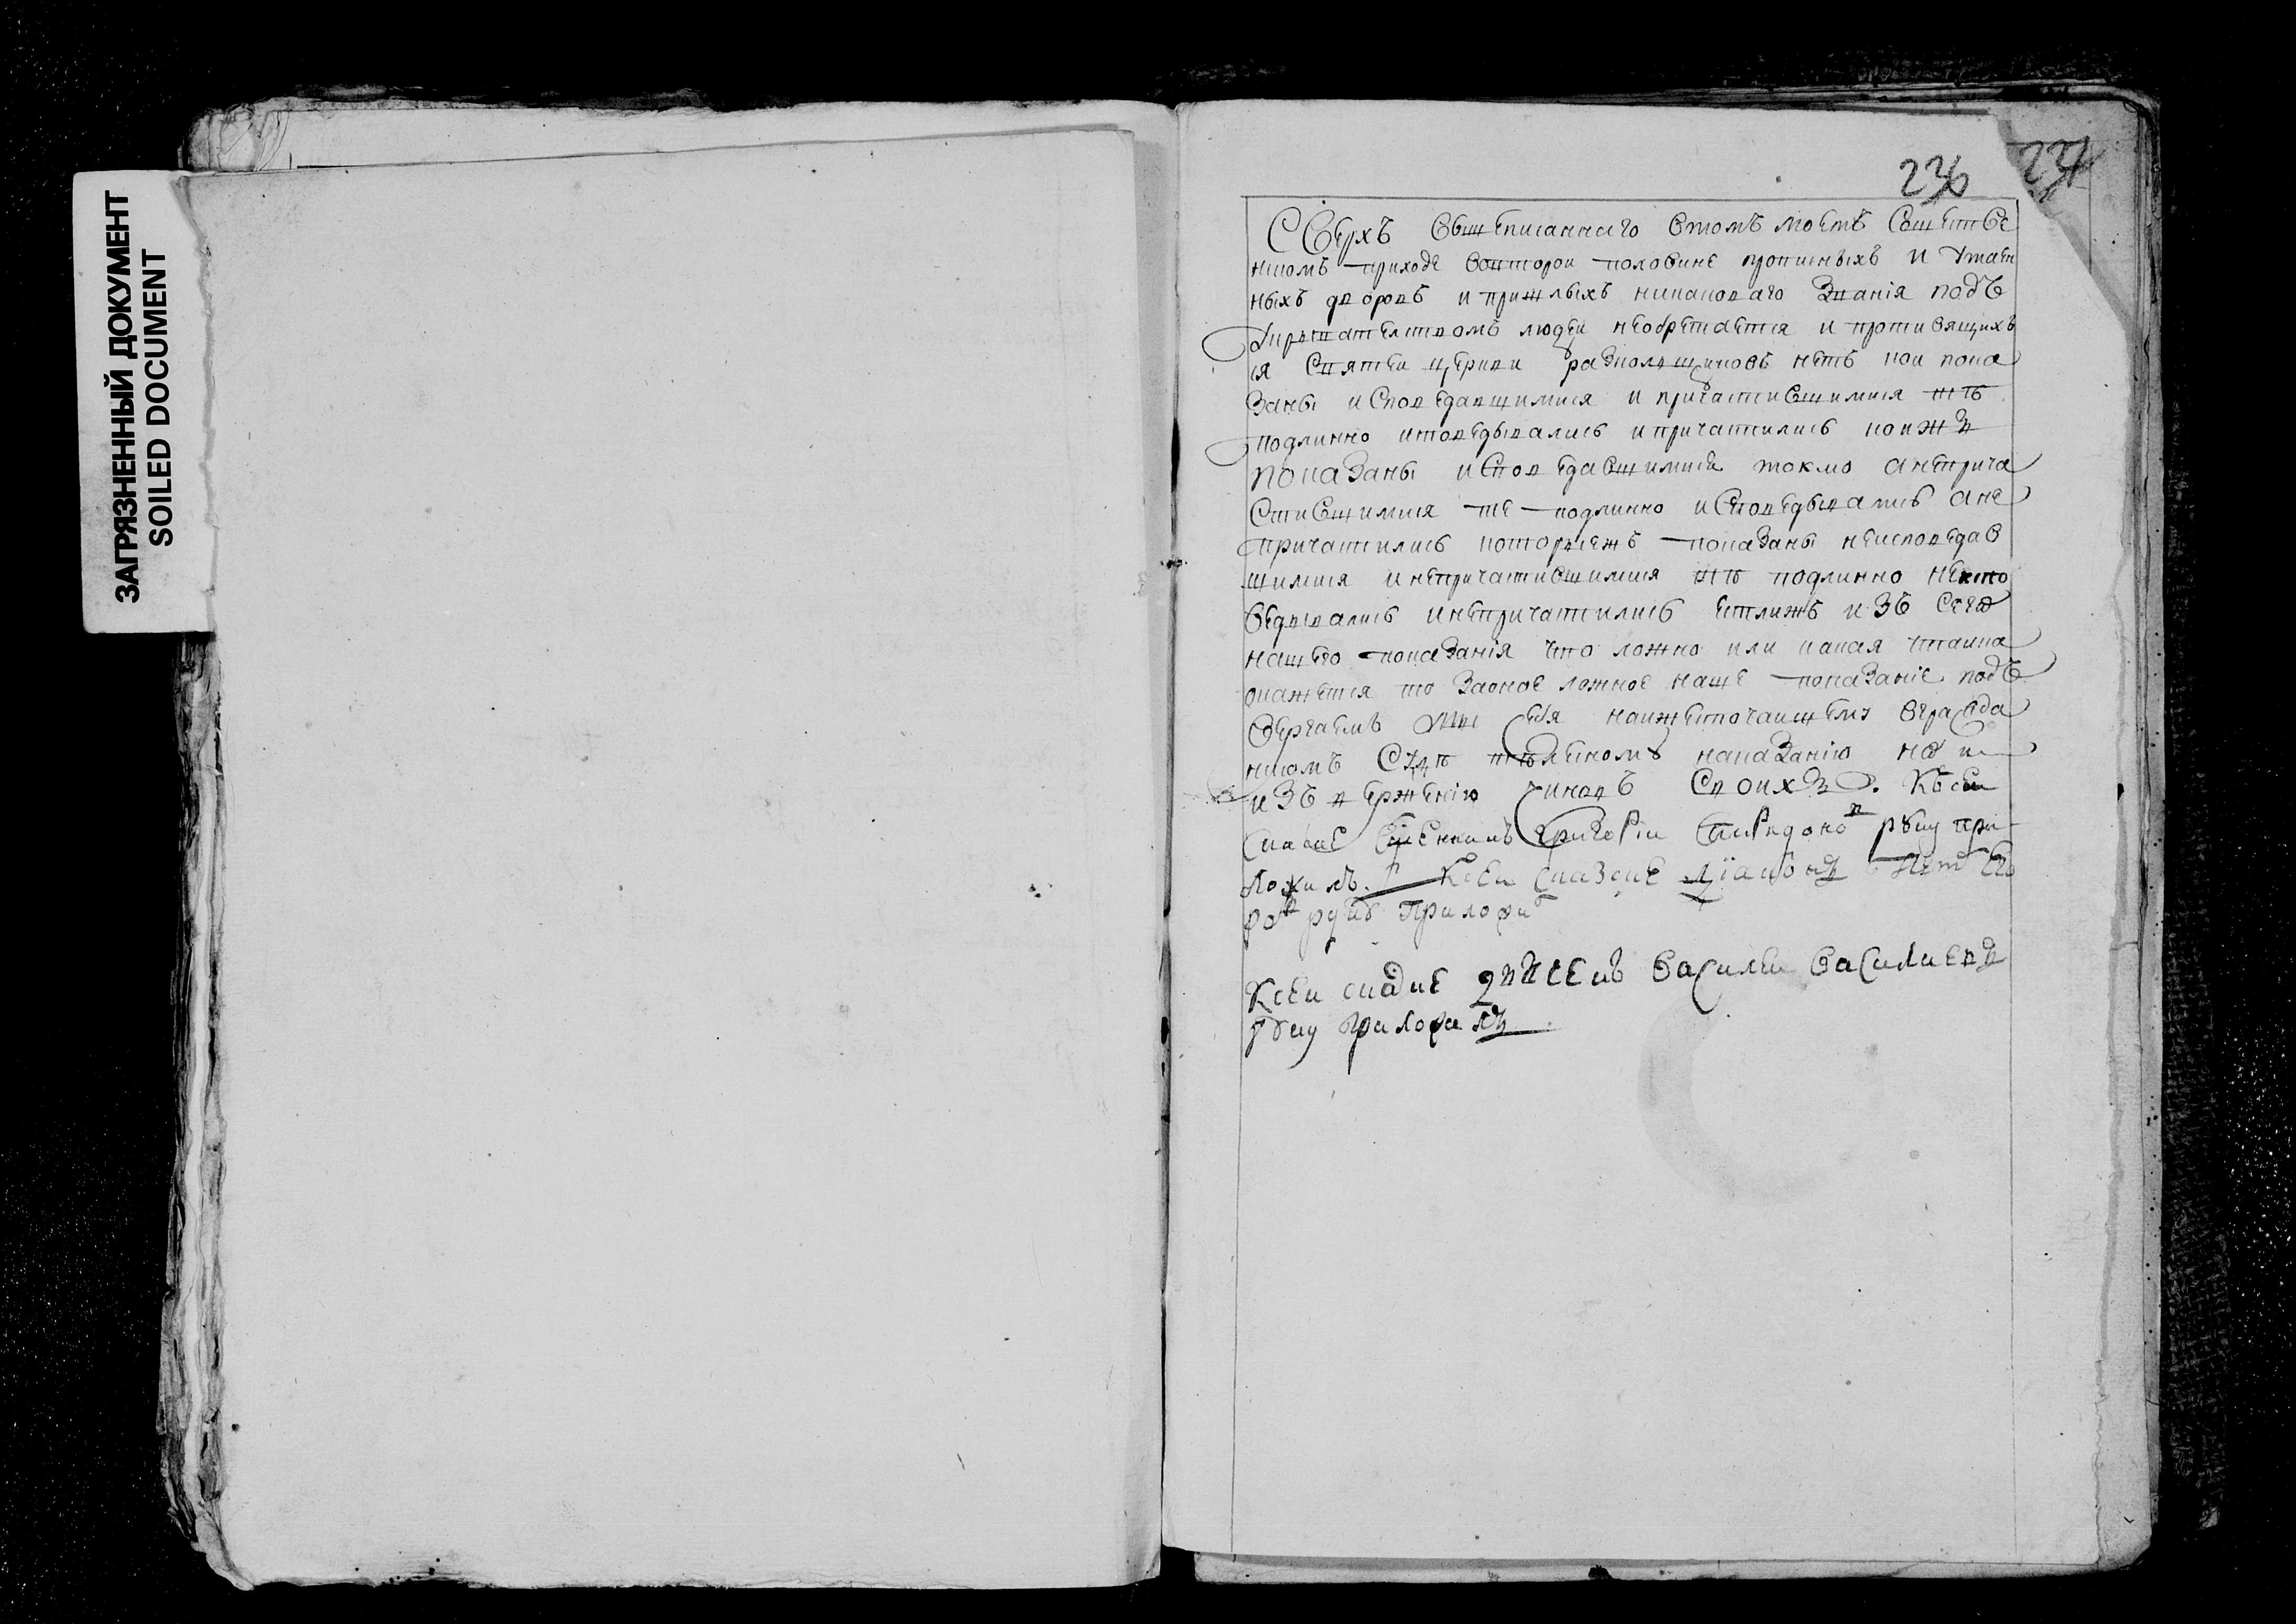 ЗАГРЯЗНЕННЫЙ ДОКУМЕНТ
SOILED DOCUMENT
236 231
Сверхъ вышеписаннаго втомъ моемъ Сщенстве
нномъ приходе вкоторои половине прописныхъ и утаен
ныхъ дворовъ и пришлыхъ никаковаго звания подъ
укрывателствомъ людеи необретается и противящихъ
ся святеи церкви расколщиковъ нетъ кои пока
заны исповедавшимися и причастившимися те
подлинно исповедывались ипричастились коижъ
показаны исповедавшимися токмо анеприча
стившимися те подлинно исповедывались ане
причастились которыежъ показаны неисповедав
шимися инепричастившимися те подлинно неиспо
ведывались инепричастились естлижъ изъ сего
нашего показания что ложно или какая утаика
окажется то заоное ложное наше показание подъ
вергаемъ себя наижесточаишему вгражда
нскомъ суде телесному наказанию но и
изъвержению чиновъ своихъ. Ксеи
скаске сщенникъ Григореи Спиридоновъ руку при
ложилъ. Ксеи скаске дияконъ Петръ
руку приложи
Ксеи скаске дьячекъ Василеи Василиевъ
руку приложилъ